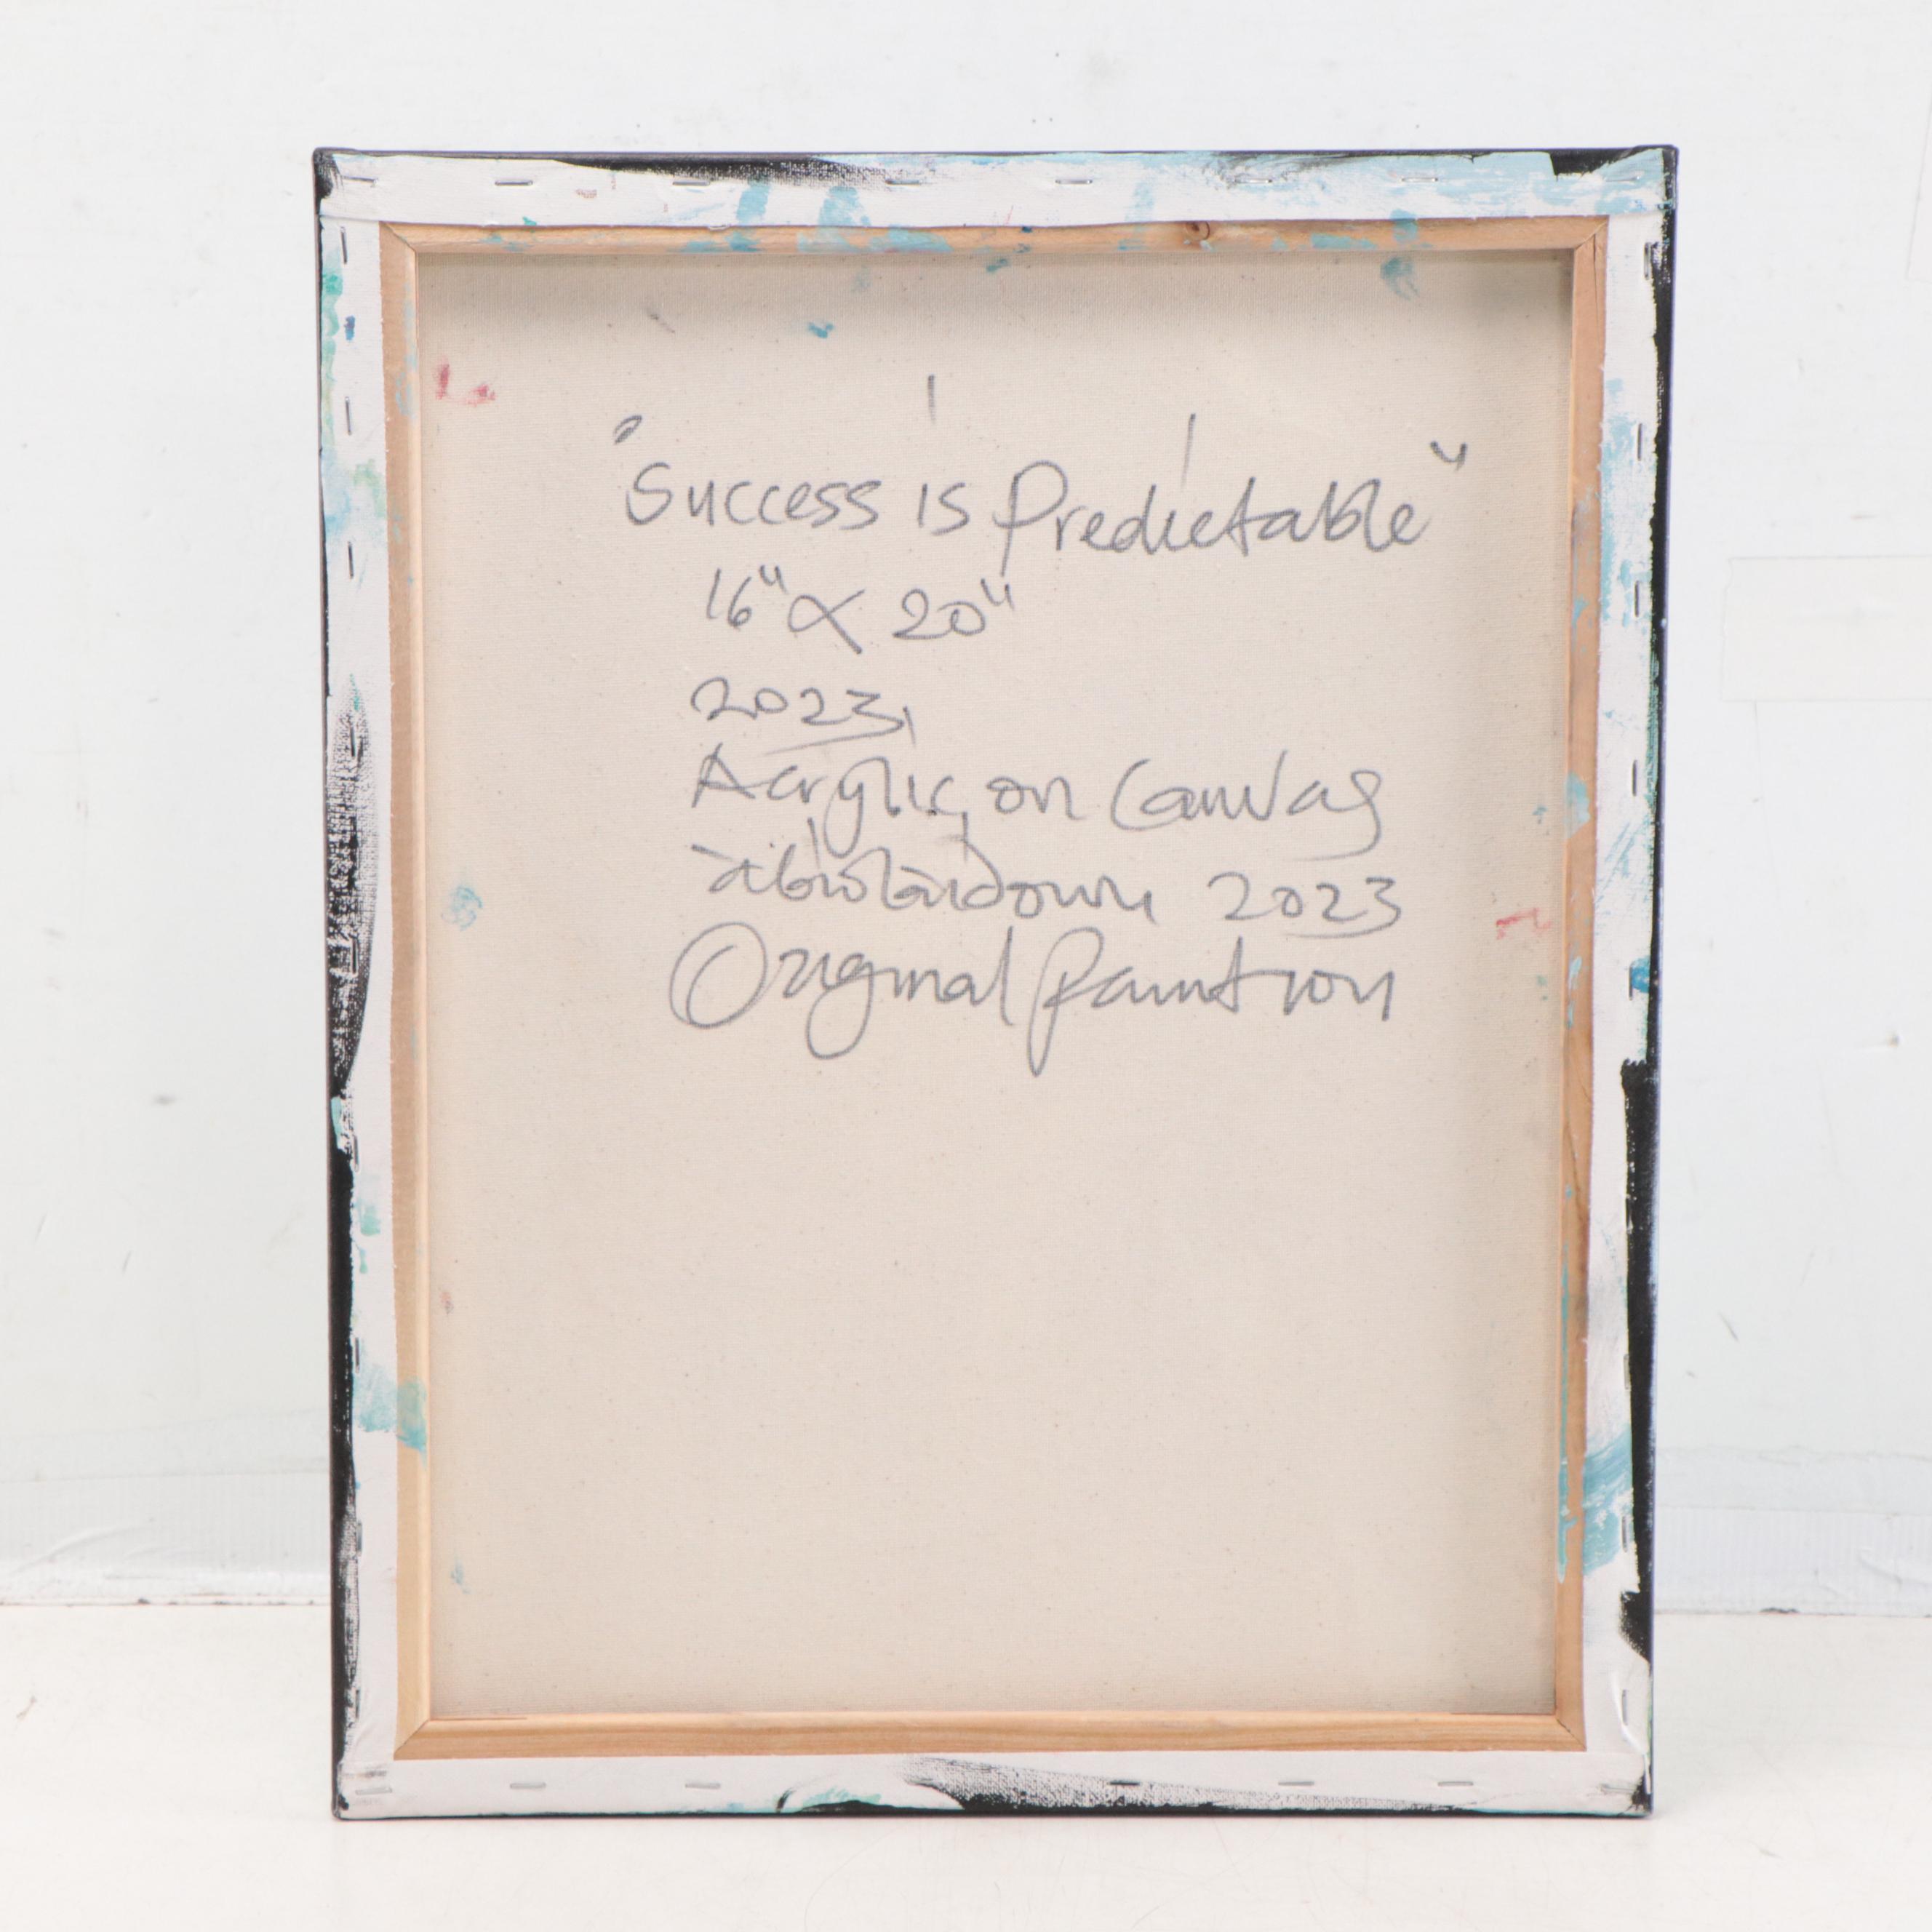 "Success is Predictable"
16" X 20"
2023
Acrylic on Canvas
2023
Original Paintion